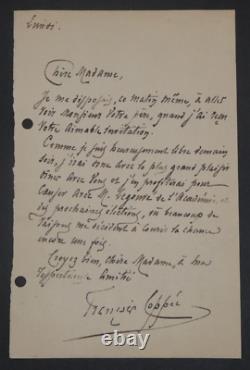 Lundi.
Chère Madame,
Je me disposais, ce matin même, à aller
voir Monsieur votre père, quand j'ai reçu
votre aimable invitation.
Comme je suis heureusement libre demain
soir, j'irai donc avec le plus grand plaisir
dîner avec vous et j'en profiterai pour
causer avec M. Legouvé de l'Académie et
des prochaines élections, où beaucoup de
raisons me décident à courir la chance
encore une fois.
Croyez bien, chère Madame, à ma
respectueuse amitié
Francois Coppée
ebay